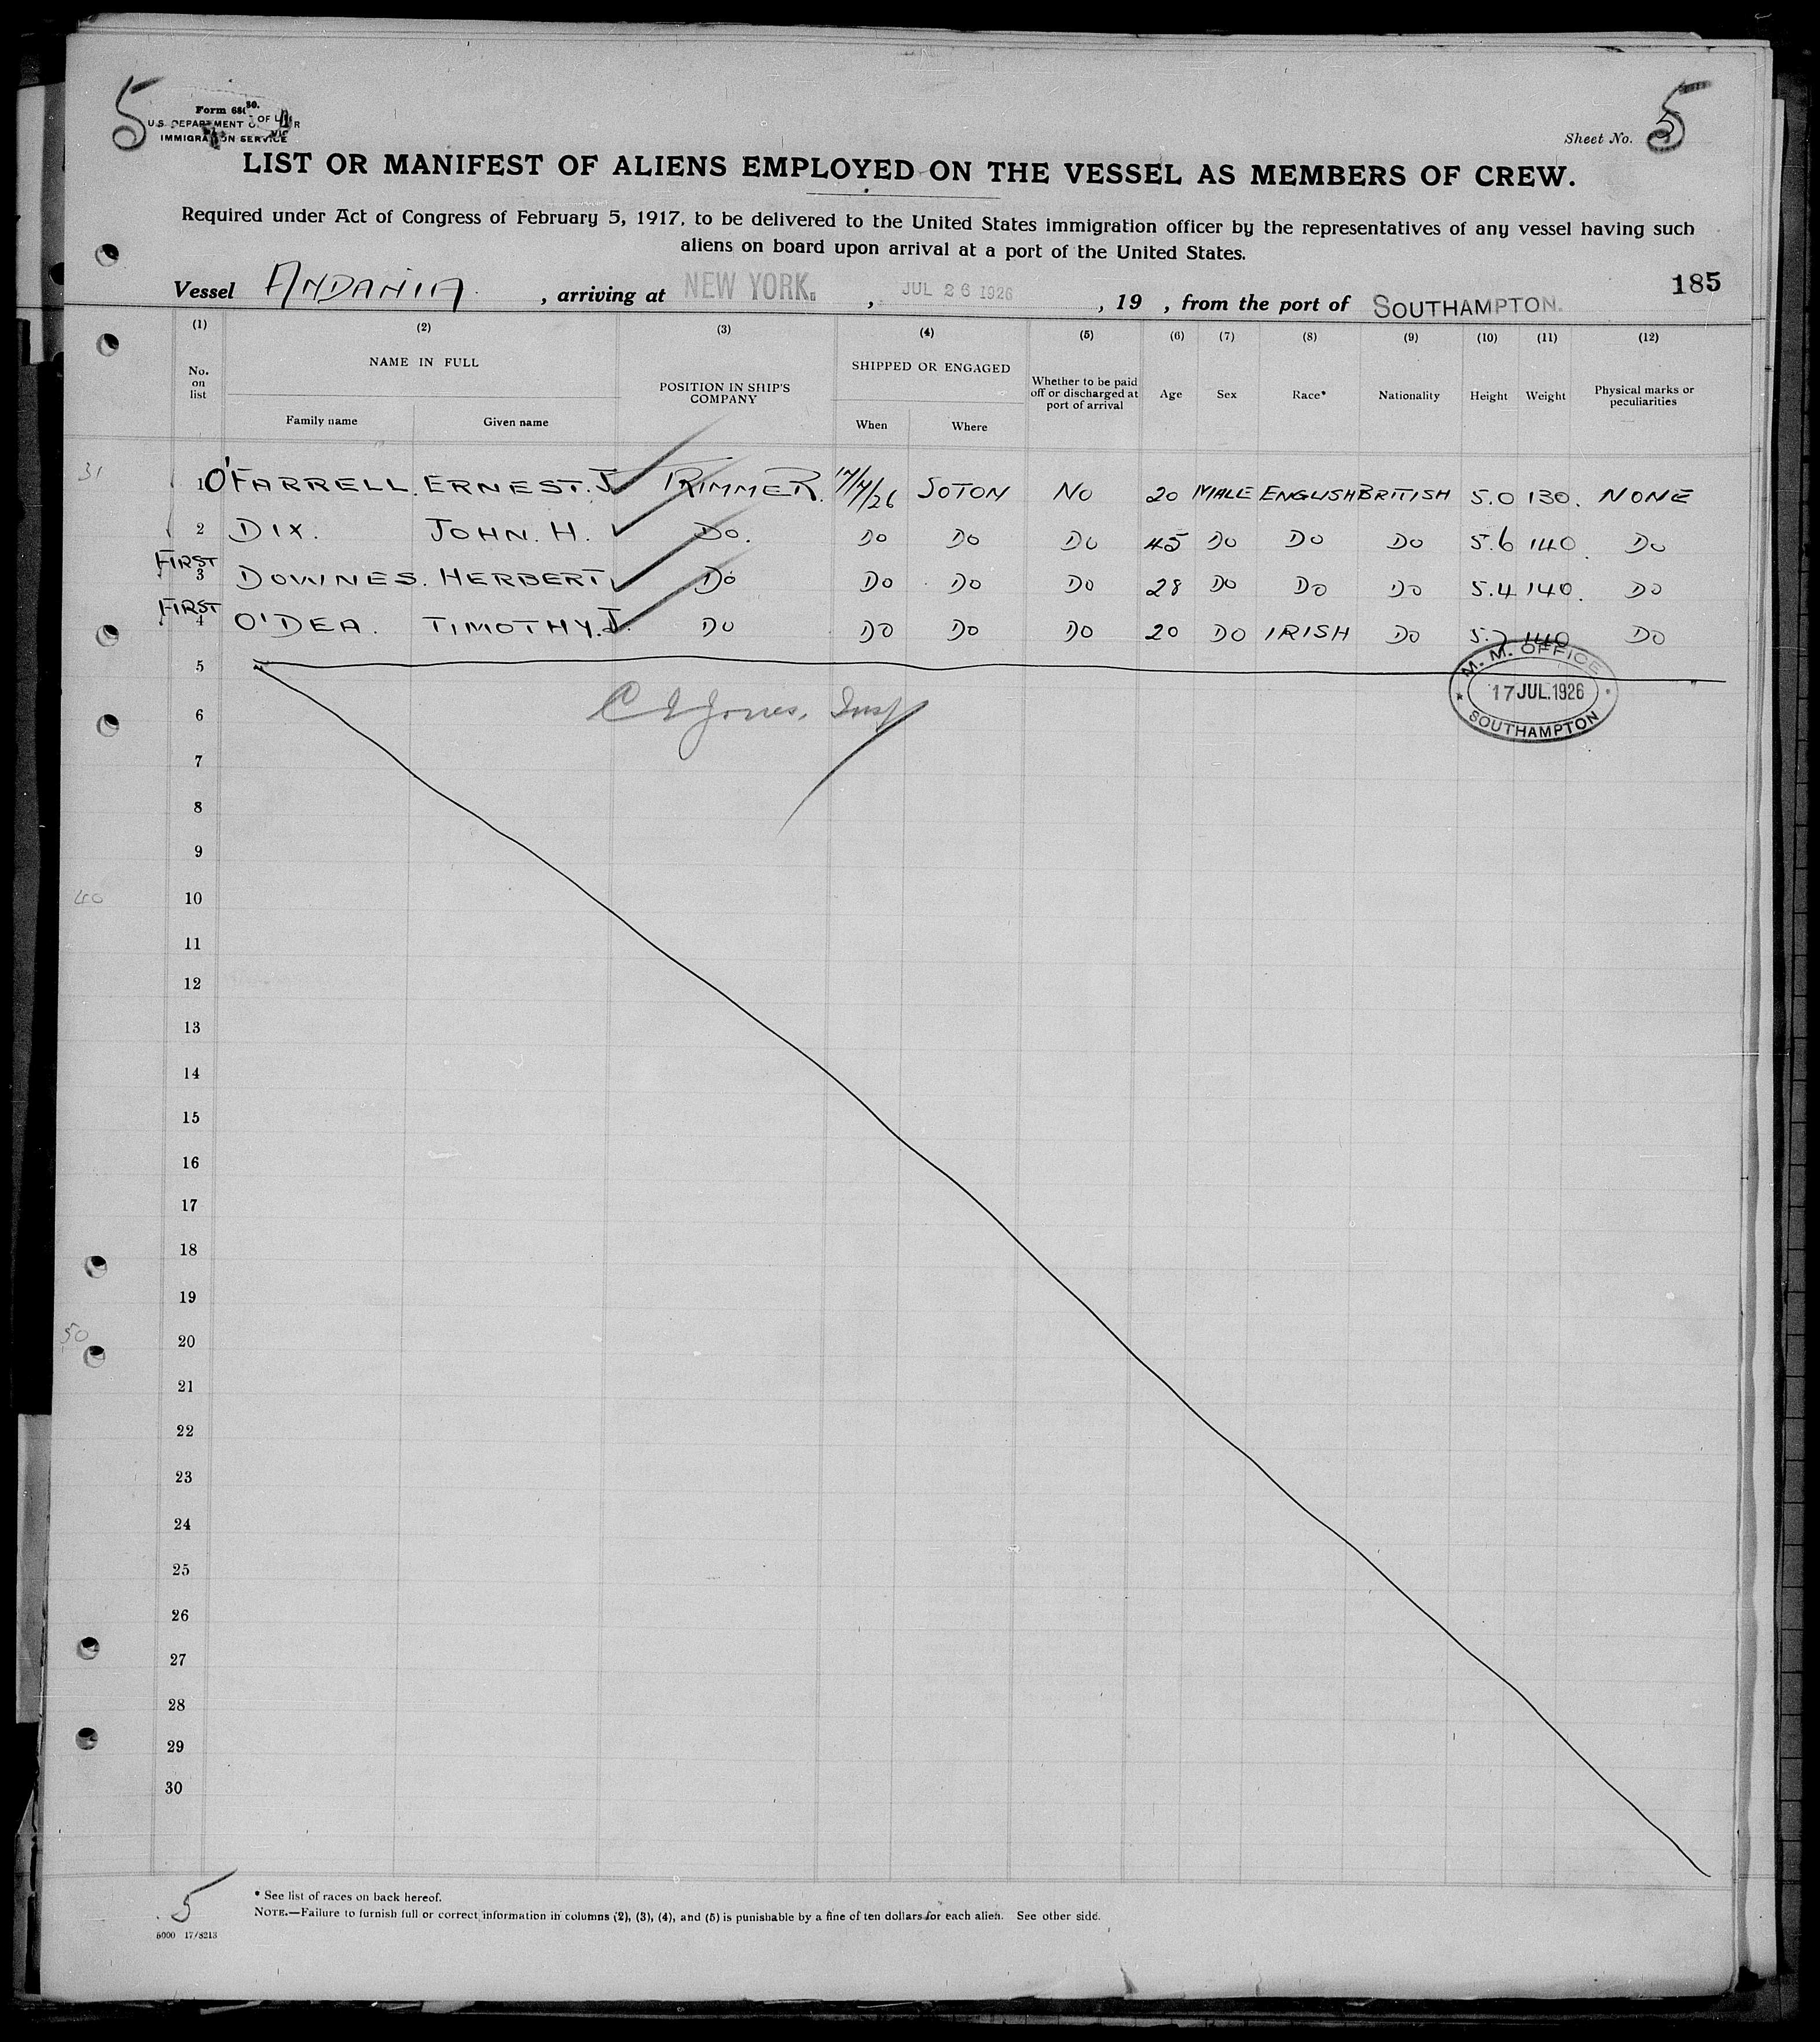 5
Form 680.
U.S. DEPARTMENT OF
IMMIGRATION SERVICE
Sheet No. 5
LIST OR MANIFEST OF ALIENS EMPLOYED ON THE VESSEL AS MEMBERS OF CREW.
Required under Act of Congress of February 5, 1917, to be delivered to the United States immigration officer by the representatives of any vessel having such
aliens on board upon arrival at a port of the United States.
185
Vessel ANDANIA, arriving at NEW YORK., JUL 26 1926, 19 , from the port of SOUTHAMPTON.
(1) (2) (3) (4) (5) (6) (7) (8) (9) (10) (11) (12)
No. on list
NAME IN FULL
Family name Given name
POSITION IN SHIP'S COMPANY
SHIPPED OR ENGAGED
When Where
Whether to be paid off or discharged at port of arrival
Age Sex Race* Nationality Height Weight
Physical marks or peculiarities
31
1 O'FARRELL. ERNEST. J TRIMMER. 17/7/26 SOTON NO 20 MALE ENGLISH BRITISH 5.0 130. NONE
2 DIX. JOHN. H. DO. DO DO DO 45 DO DO DO 5.6 140. DO
FIRST 3 DOWNES. HERBERT. DO DO DO DO 28 DO DO DO 5.4 140. DO
FIRST 4 O'DEA. TIMOTHY. J. DO DO DO DO 20 DO IRISH DO 5.7 140 DO
M. M. OFFICE
17 JUL. 1926
SOUTHAMPTON
5
6
Jones, Insp
7
8
9
40
10
11
12
13
14
15
16
17
18
19
50
20
21
22
23
24
25
26
27
28
29
30
5
* See list of races on back hereof.
NOTE.—Failure to furnish full or correct information in columns (2), (3), (4), and (5) is punishable by a fine of ten dollars for each alien. See other side.
5000 17/8213